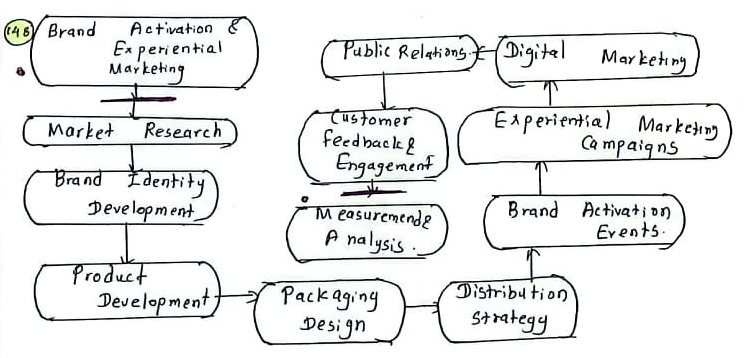 148
Brand Activation &
Experiential
Marketing
Market Research
Brand Identity
Development
Product
Development
Packaging
Design
Distribution
Strategy
Brand Activation
Events.
Experiential Marketing
Campaigns
Digital Marketing
Public Relations.
Customer
feedback &
Engagement
Measuremend&
Analysis.